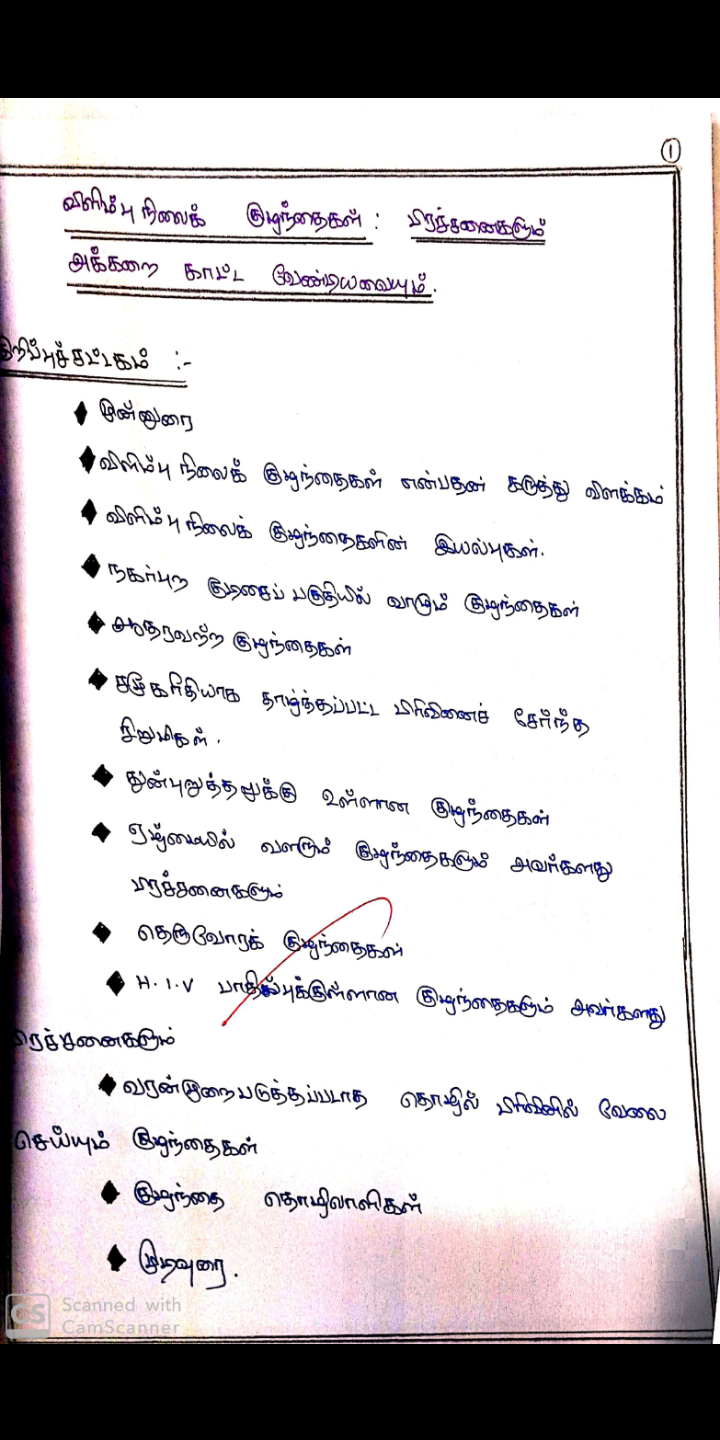 1
விளிம்பு நிலைக் குழந்தைகள் : பிரச்சனைகளும்
அக்கறை காட்ட வேண்டியவையும்.
குறிப்புச்சட்டகம் :-
முன்னுரை
விளிம்பு நிலைக் குழந்தைகள் என்பதன் கருத்து விளக்கம்
விளிம்பு நிலைக் குழந்தைகளின் இயல்புகள்.
நகர்புற குடிசைப் பகுதியில் வாழும் குழந்தைகள்
ஆதரவற்ற குழந்தைகள்
சமூகரீதியாக தாழ்த்தப்பட்ட பிரிவினைச் சேர்ந்த
சிறுமிகள்.
துன்புறுத்தலுக்கு உள்ளான குழந்தைகள்
ஏழ்மையில் வளரும் குழந்தைகளும் அவர்களது
பிரச்சனைகளும்
தெருவோரக் குழந்தைகள்
H.I.V பாதிப்புக்குள்ளான குழந்தைகளும் அவர்களது
பிரச்சனைகளும்
வரன்முறைபடுத்தப்படாத தொழில் பிரிவில் வேலை
செய்யும் குழந்தைகள்
குழந்தை தொழிலாளிகள்
முடிவுரை.
CS Scanned with
CamScanner